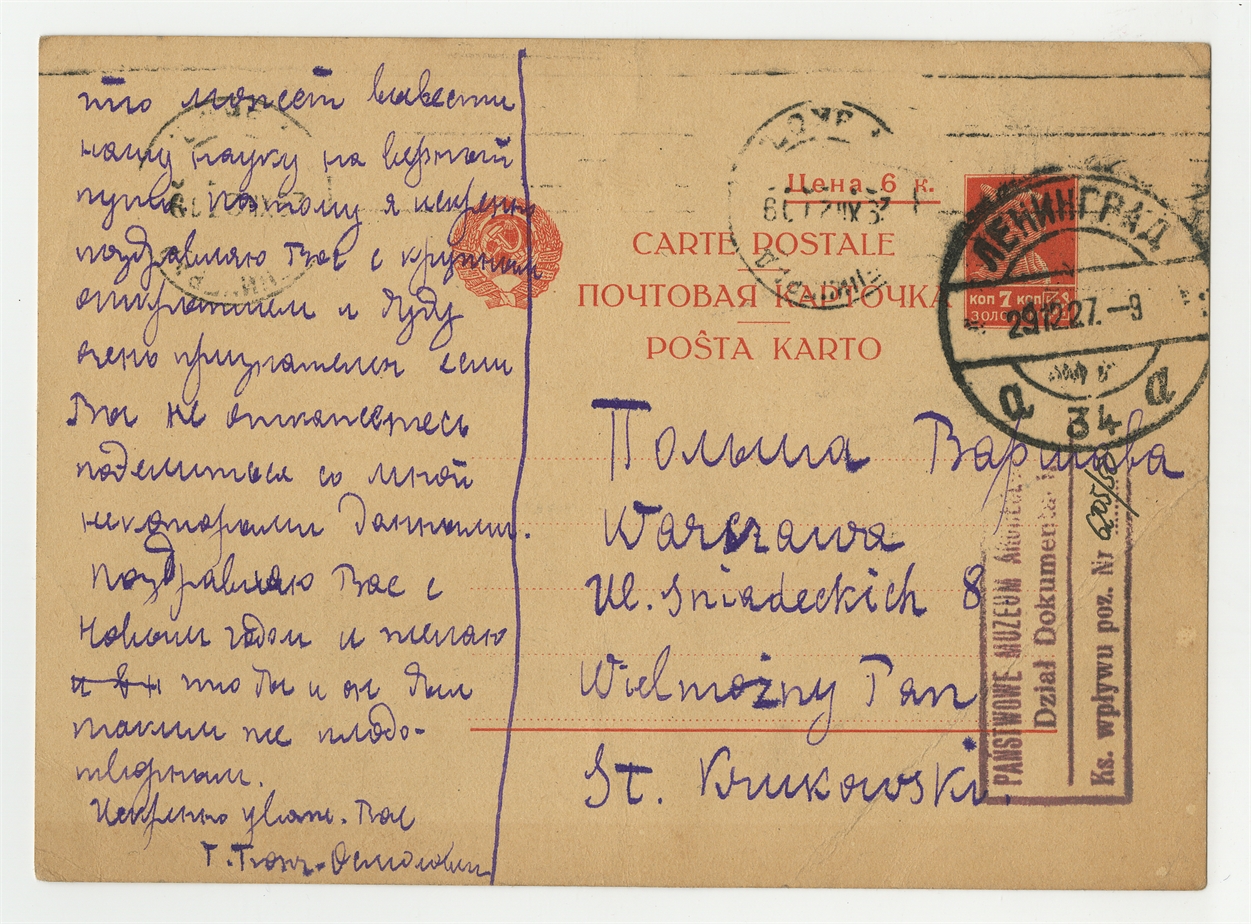 что может вывести
нашу науку на верный
путь поэтому я искренно
поздравляю Вас с крупным
открытием и буду
очень признателен если
Вы не откажетесь
поделиться со мной
некоторыми данными.
Поздравляю Вас с
Новым годом и желаю
чтобы и он был
таким же плодо-
творным.
Искренно уваж. Вас
Г.
Цена 6 к.
CARTE POSTALE
ПОЧТОВАЯ КАРТОЧКА
POŜTA KARTO
КОП 7 КОП
ЗОЛО
ЛЕНИНГРАД
29.12.27.-9
а 34 а
Польша Варшава
Warszawa
Ul. Sniadeckich 8
Wielmożny Pan
St. Krukowski.
PAŃSTWOWE MUZEUM
Dział Dokumenta
Ks. wpływu poz. Nr